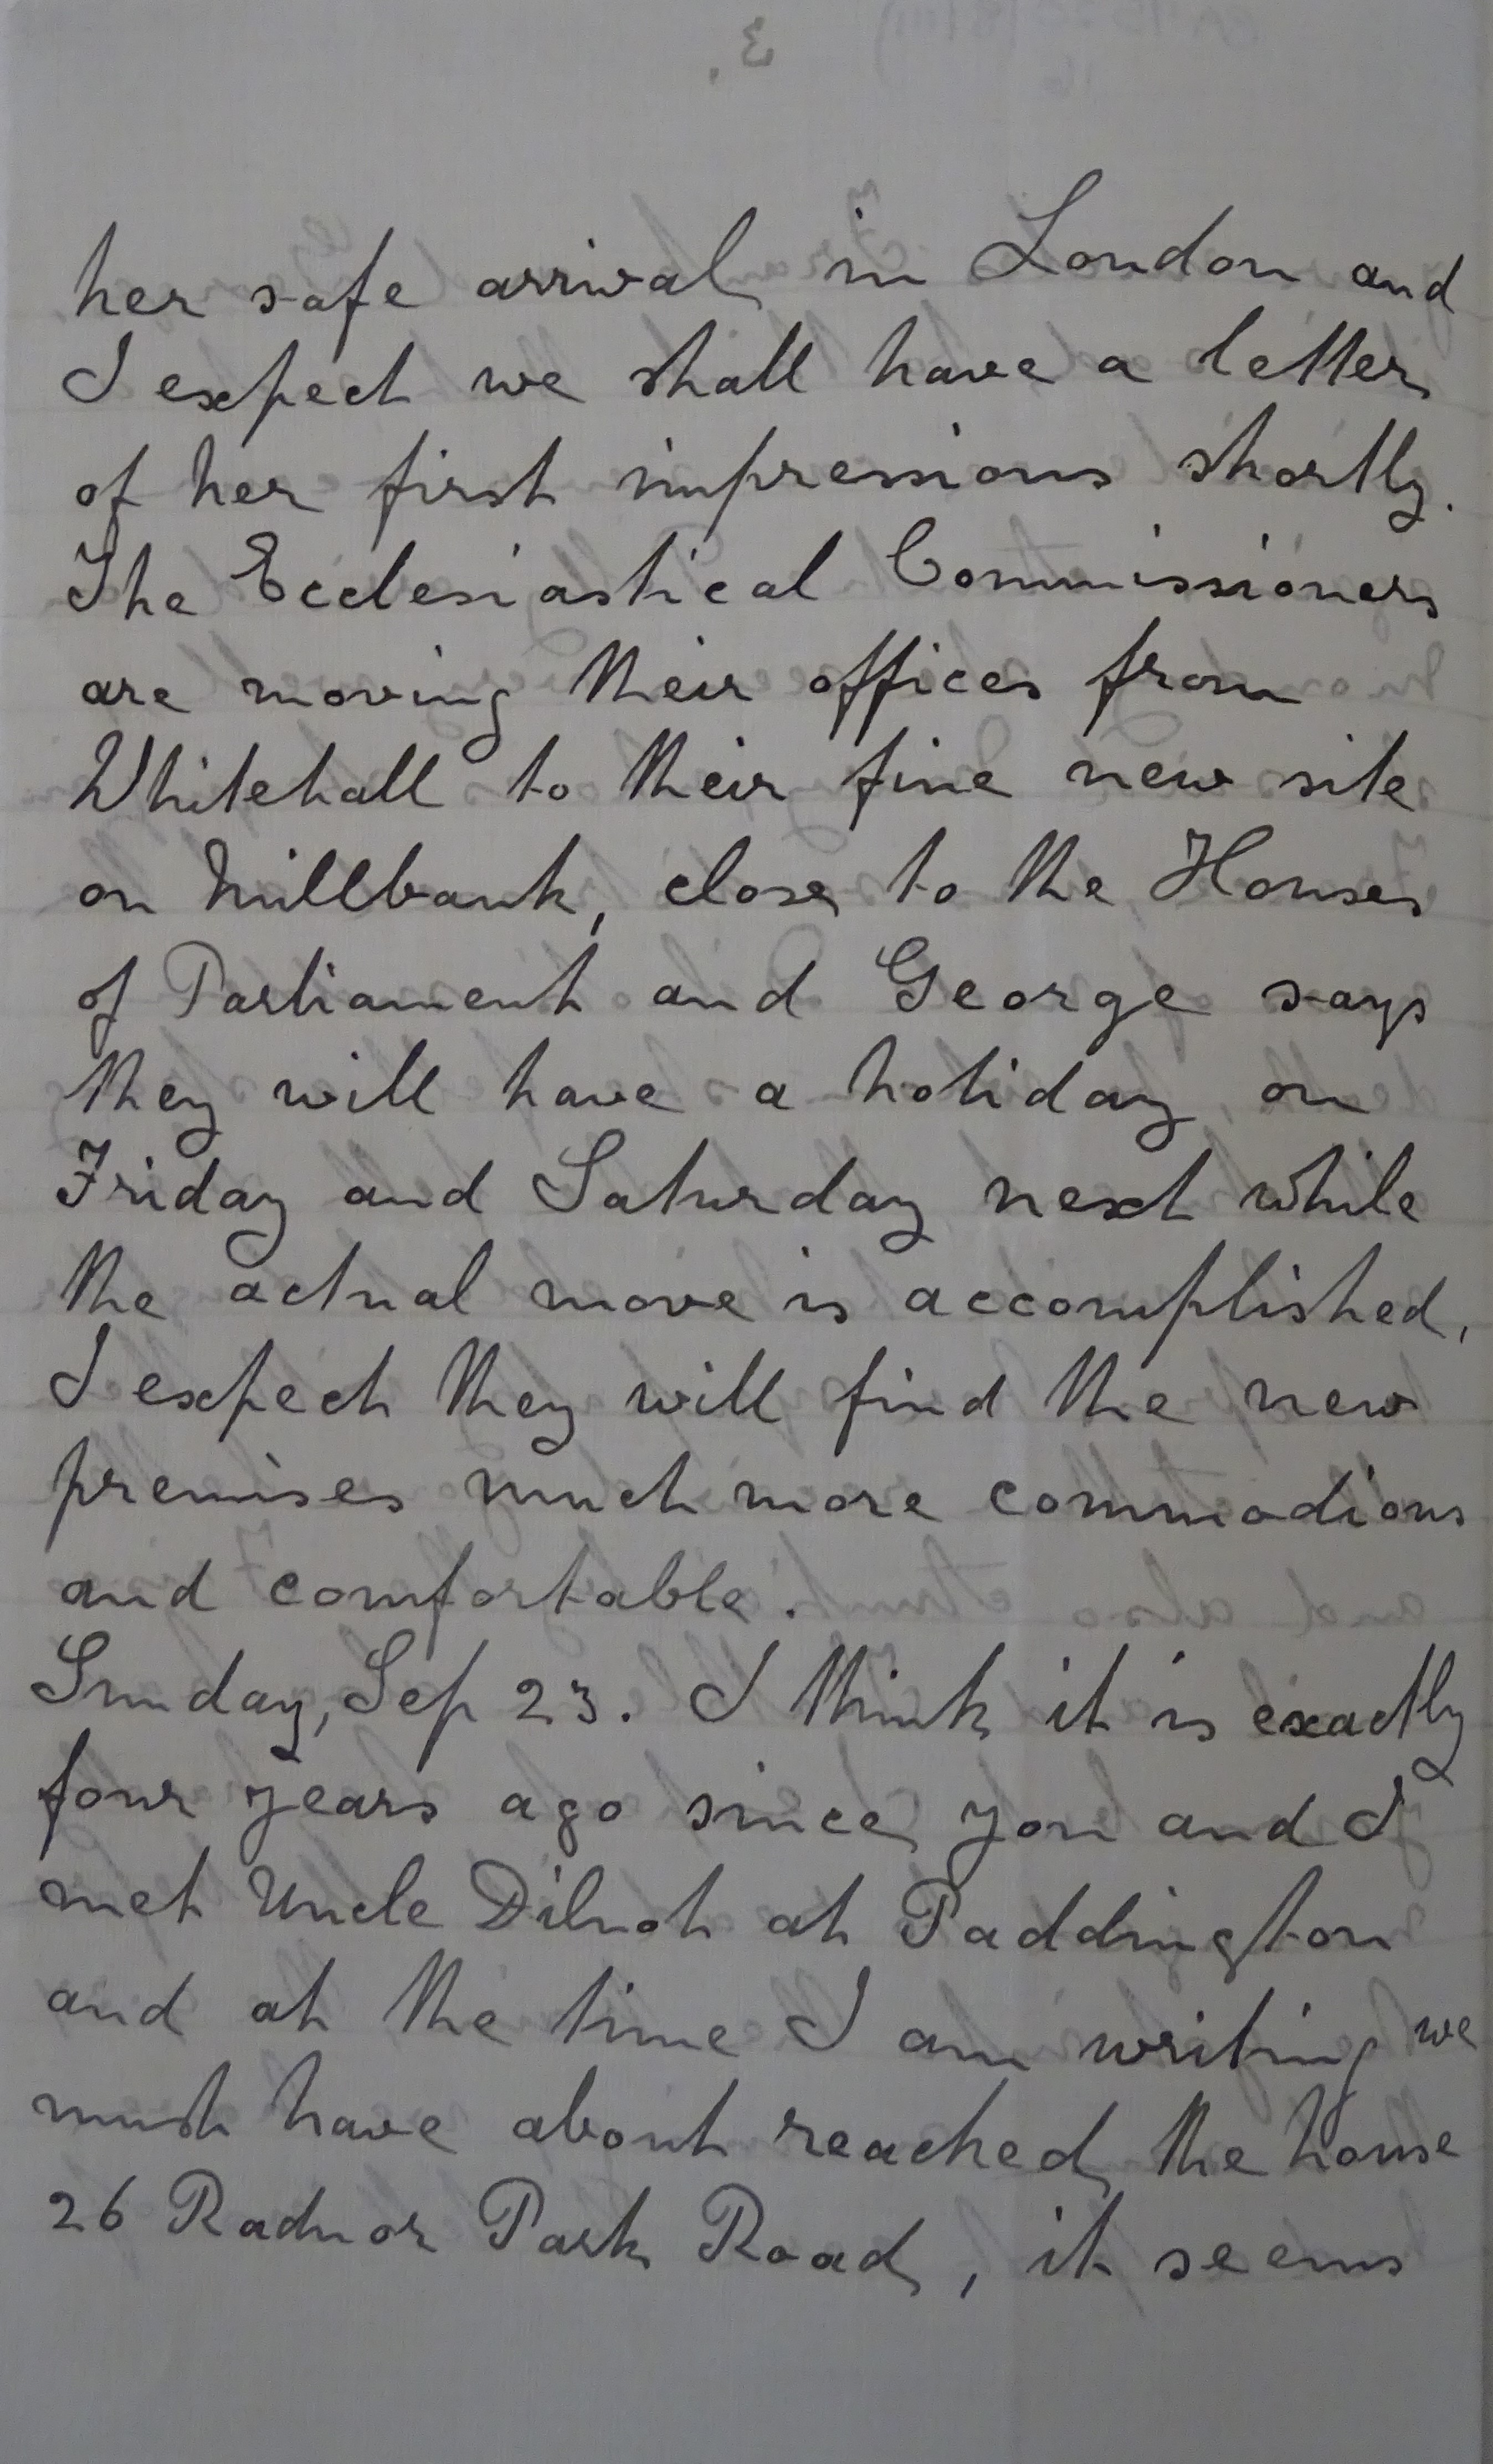 her safe arrival in London and
I expect we shall have a letter
of her first impressions shortly.
The Ecclesiastical Commissioners
are moving their offices from
Whitehall to their fine new site
on Millbank, close to the Houses
of Parliament and George says
they will have a holiday on
Friday and Saturday next while
the actual move is accomplished,
I expect they will find the new
premises much more commodious
and comfortable.
Sunday, Sep 23. I think it is exactly
four years ago since you and I
met Uncle Dilnot at Paddington
and at the time I am writing we
must have about reached the house
26 Radnor Park Road, it seems